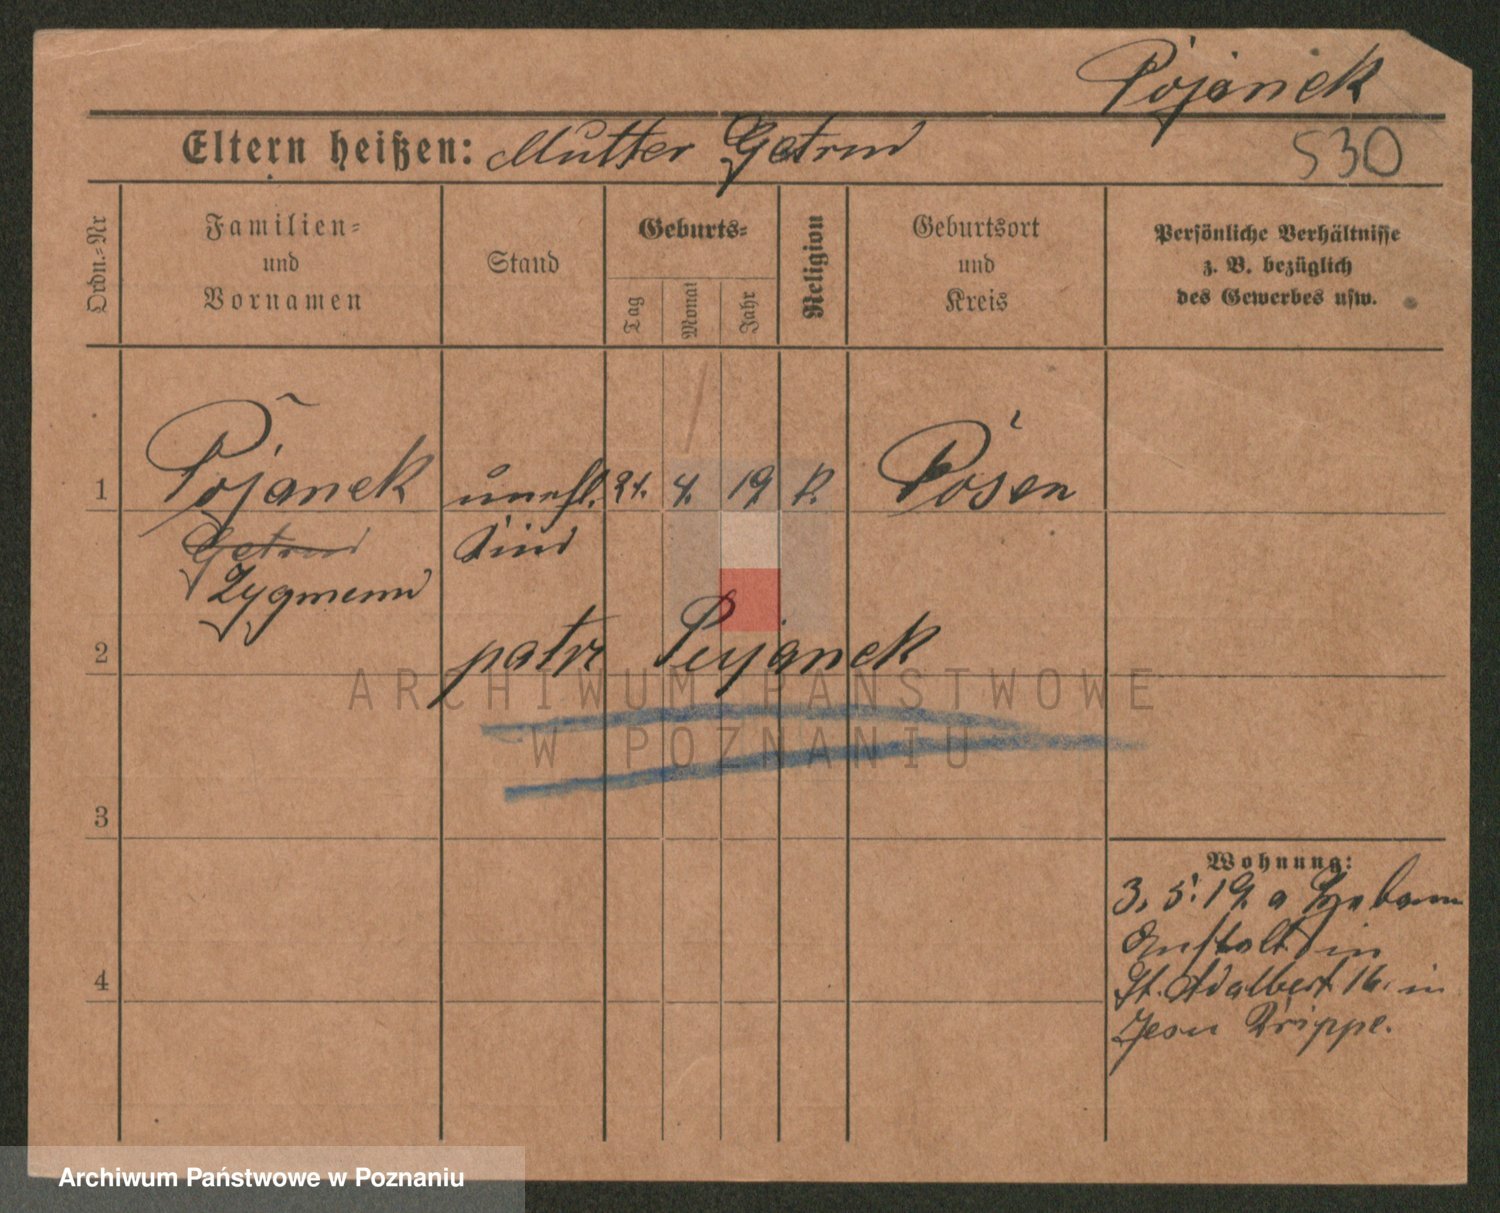 Pojanek
530
Eltern heißen: Mutter Getrud
Ordn.-Nr
Familien-
und
Vornamen
Stand
Geburts-
Tag
Monat
Jahr
Religion
Geburtsort
und
Kreis
Persönliche Verhältnisse
z. B. bezüglich
des Gewerbes usw.
1 Pojanek unehl. 21. 4. 19 k. Posen
Getrud Kind
Zygmunt
2 patrz Pujanek
ARCHIWUM PAŃSTWOWE
W POZNANIU
3
Wohnung:
3. 5. 19. a
Anstalt in
4 St. Adalbert 16. in
Jesu Krippe.
Archiwum Państwowe w Poznaniu